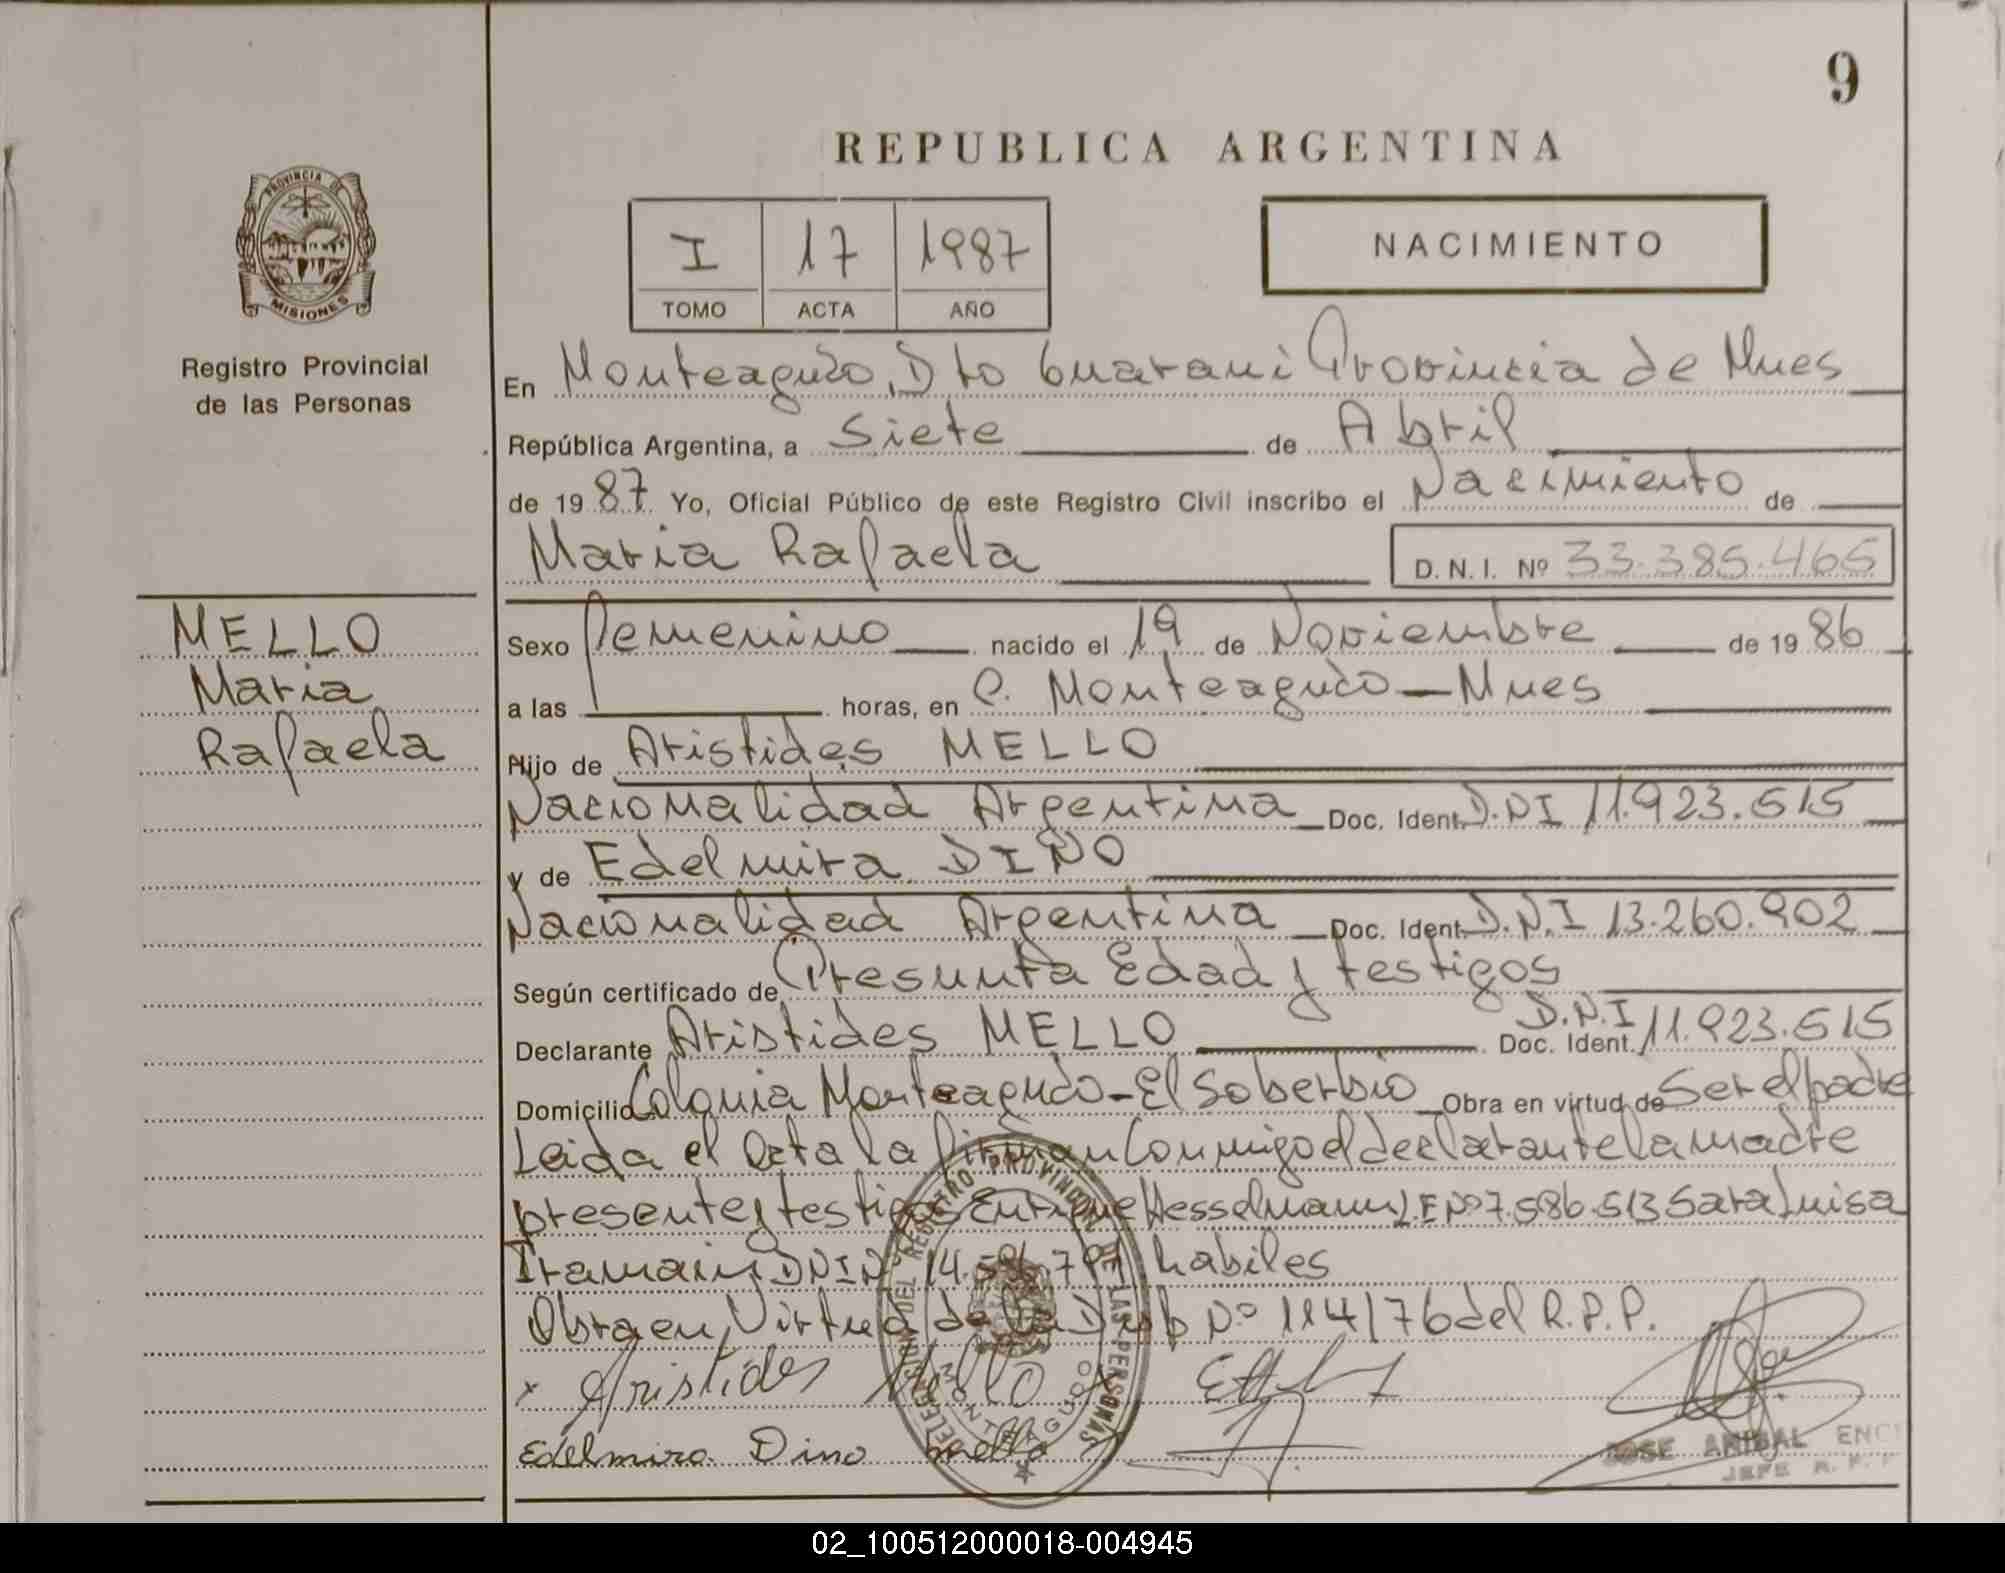 9
REPUBLICA ARGENTINA
PROVINCIA DE
MISIONES
Registro Provincial
de las Personas
I 17 1987
TOMO ACTA AÑO
NACIMIENTO
En Monteagudo, Dto Guarani Provincia de Mnes
República Argentina, a Siete de Abril
de 1987 Yo, Oficial Público de este Registro Civil inscribo el Nacimiento de
Maria Rafaela
D. N. I. Nº 33.385.465
MELLO
Maria
Rafaela
Sexo Femenino nacido el 19 de Noviembre de 1986
a las horas, en C. Monteagudo - Mnes
Hijo de Aristides MELLO
Nacionalidad Argentina Doc. Ident. D.NI 11.923.515
y de Edelmira DINO
Nacionalidad Argentina Doc. Ident. D.N.I 13.260.902
Según certificado de Presunta Edad y testigos
Declarante Aristides MELLO Doc. Ident. D.N.I 11.923.515
Domicilio Colonia Monteagudo - El Soberbio Obra en virtud de Ser el padre
Leida el Acta la firman Conmigo el declarante la madre
presente y testigos Enrique Hesselmann L.E Nº 7.586.513 Sara Luisa
DNI Nº 14. habiles
Obra en Virtud de la Disp Nº 114/76 del R.P.P.
x Aristides Mello
Edelmira Dino Mello
DELEGACION DEL REGISTRO PROVINCIAL DE LAS PERSONAS
MONTEAGUDO
JOSE ANIBAL ENC
JEFE R. P. P
02_100512000018-004945